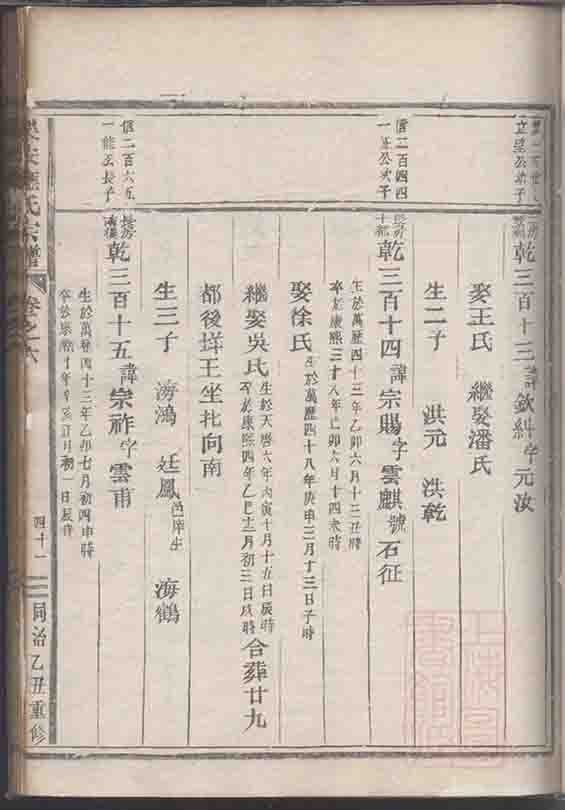 立達公弟子
乾三百十三諱欽糾字元汝
娶王氏 繼娶潘氏
生二子 洪元 洪乾
信二百四四
一正公次子
乾三百十四諱宗賜字雲麒號石征
生於萬歷四十三年乙卯六月十三丑時
卒於康熙三十八年己卯六月十四未時
娶徐氏生於萬歷四十八年庚申三月十三日子時
繼娶吳氏生於天啓六年丙寅十月十五日辰時
卒於康熙四年乙巳十二月初三日戌時
合葬廿九
都後垟王坐北向南
生三子 海鴻 廷鳳邑庠生 海鶴
信二百六五
一能公長子
乾三百十五諱宗祚字雲甫
生於萬歷四十三年乙卯七月初四申時
卒於康熙十年辛亥 月初一日辰時
氏宗譜
卷之六
四十一
同治乙丑重修
上海圖書館藏